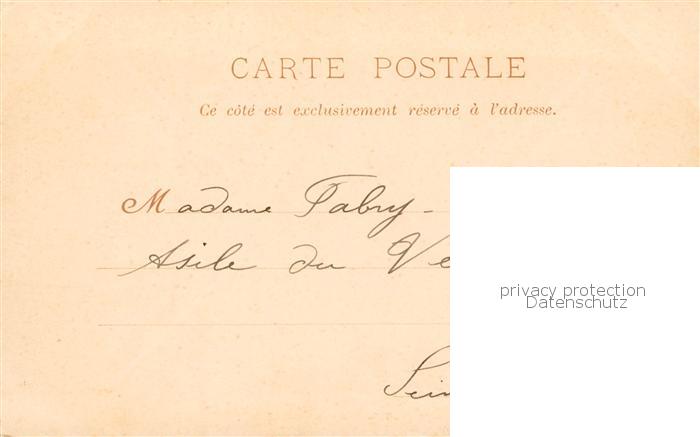 CARTE POSTALE
Ce côté est exclusivement réservé à l'adresse.
Madame Fabry -
Asile du Ve
privacy protection
Datenschutz
Sein